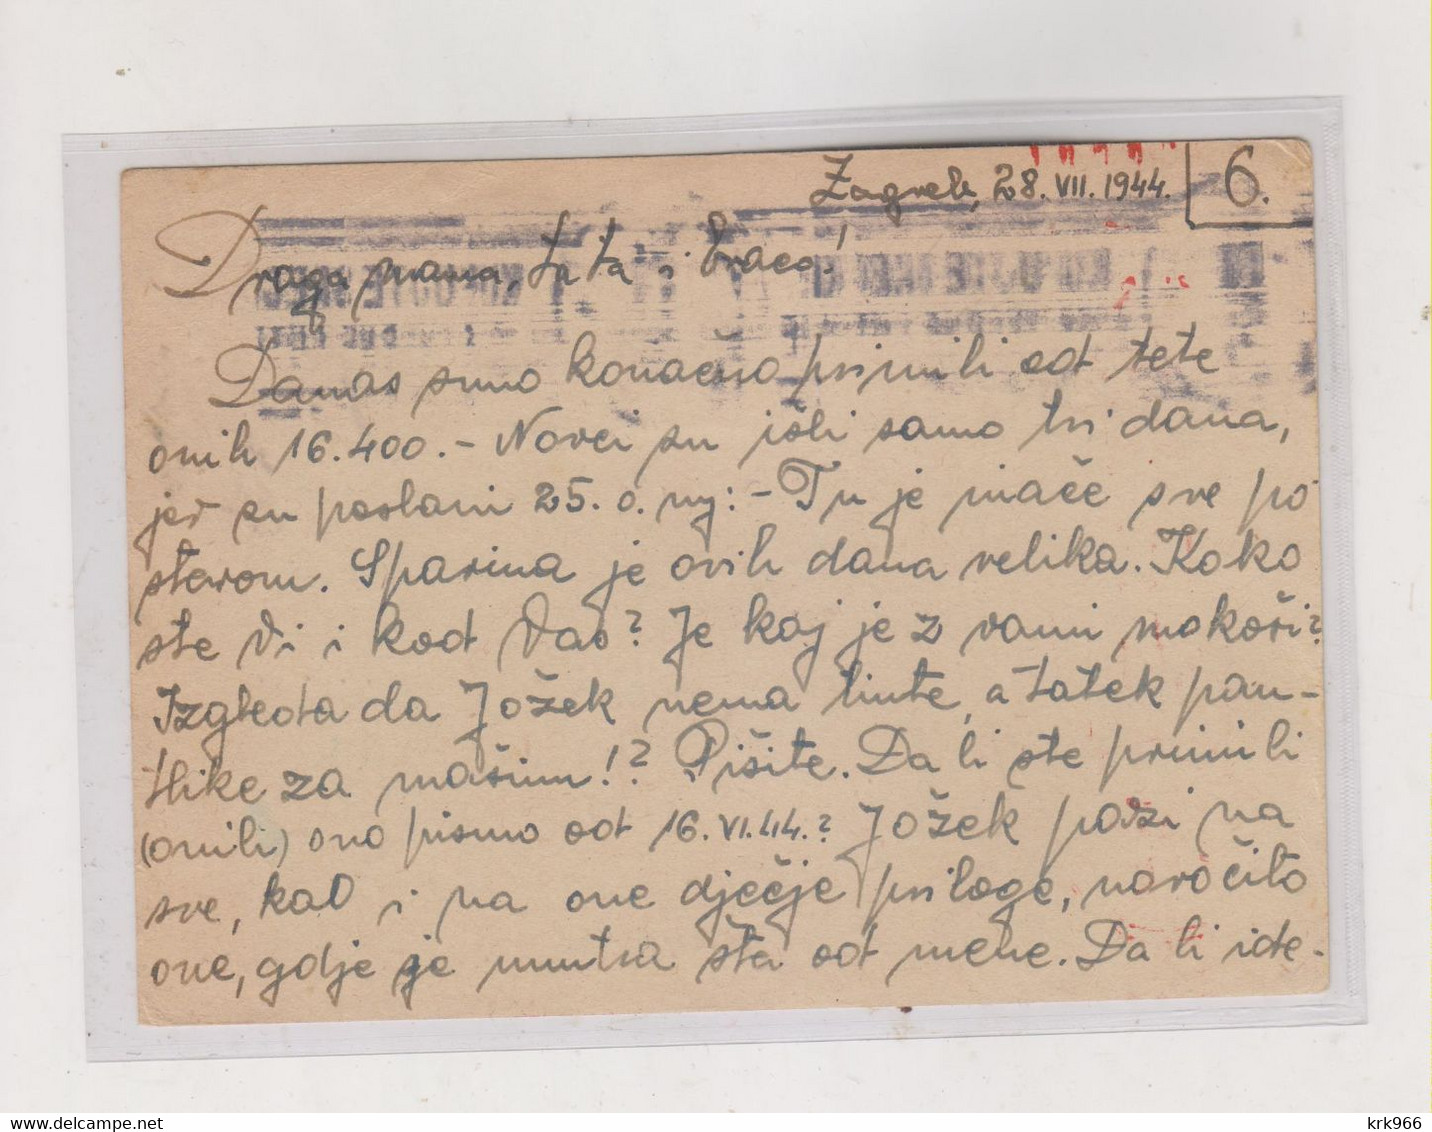 Zagreb, 28. VII. 1944.
6.
Draga mama, tata i braco!
Danas smo konačno primili od tete
onih 16.400.- Novci su išli samo tri dana,
jer su poslani 25. o. mj: - Tu je inače sve po
starom. Sparina je ovih dana velika. Kako
ste Vi i kod Vas? Je kaj je z vami mokoši?
Izgleda da Jožek nema tinte, a tatek pan-
tlike za mašinu!? Pišite. Da li ste primili
(onili) ono pismo od 16. VI. 44.? Jožek pazi na
sve, kao i na one dječje priloge, naročito
one, gdje je unutra šta od mene. Da li ide-
www.delcampe.net
krk966